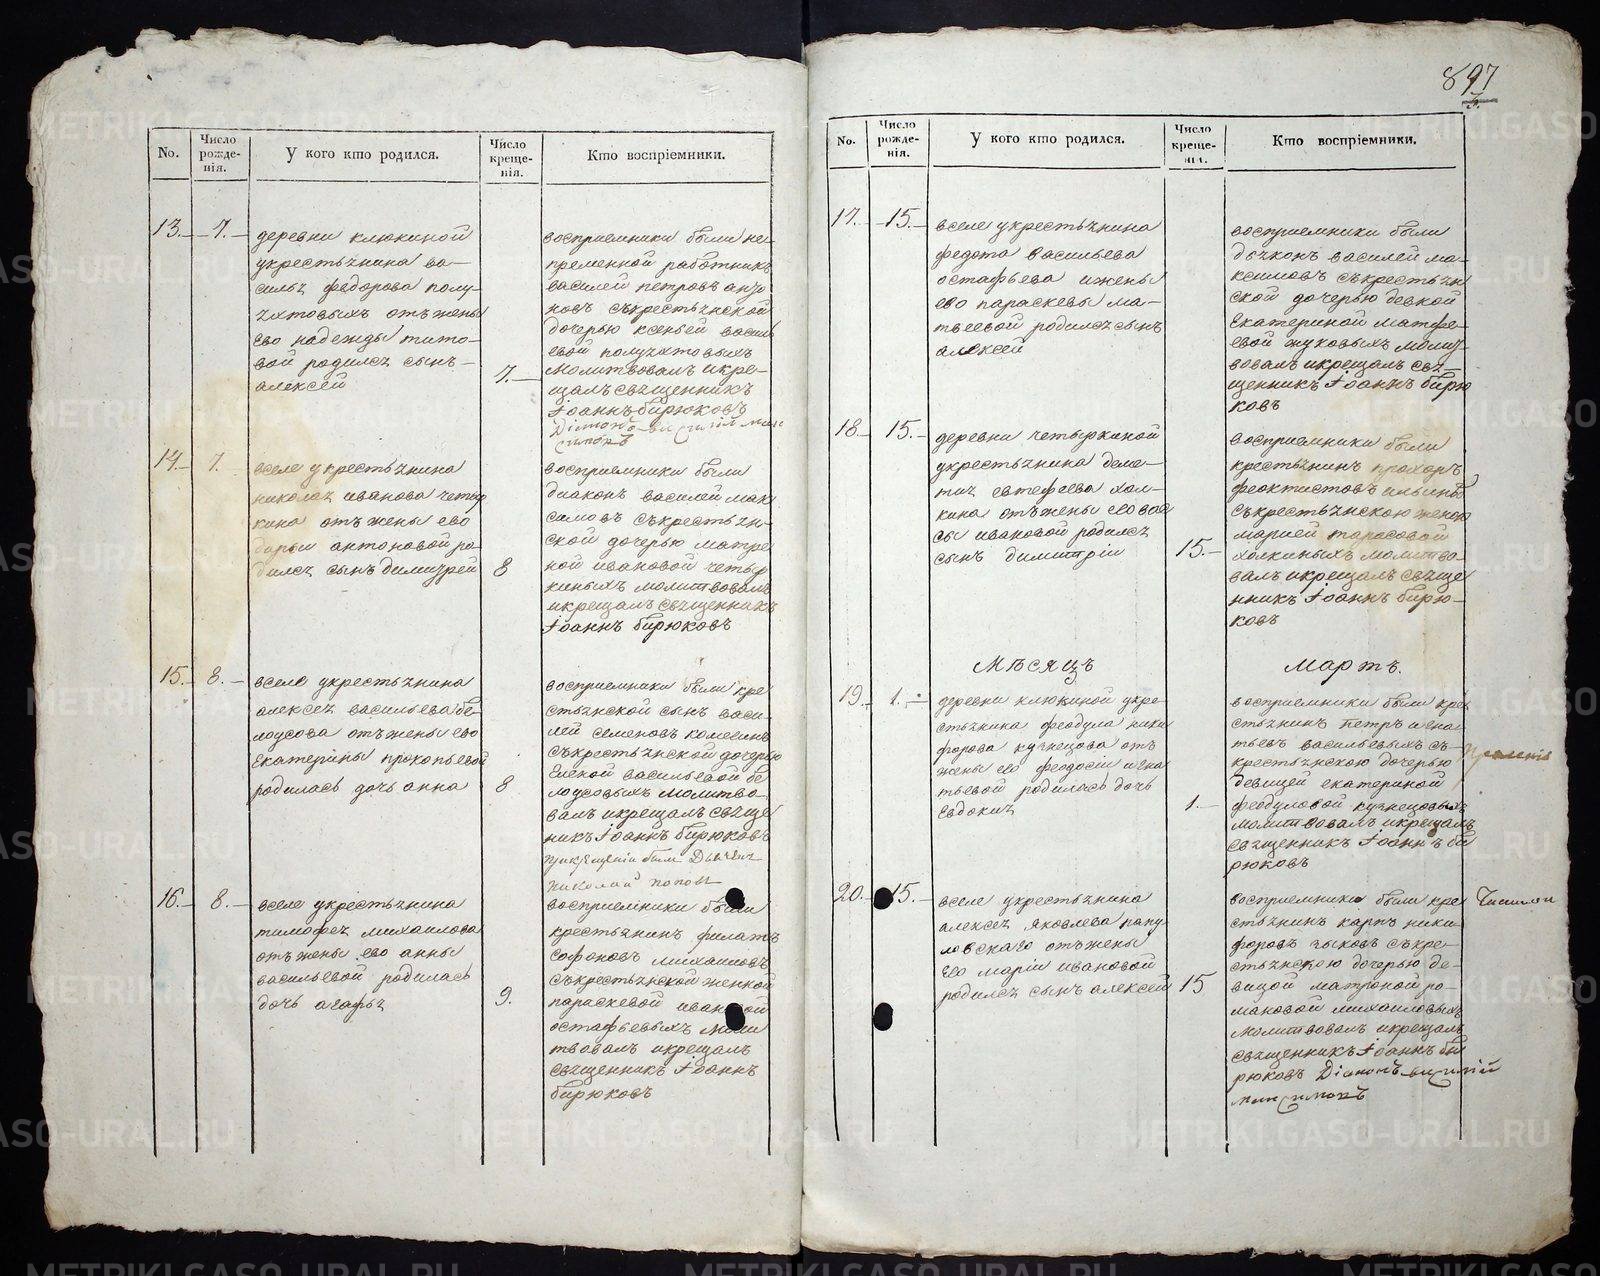 No.
Число рожде-нія.
У кого кто родился.
Число креще-нія.
Кто воспріемники.
13.
7.
деревни клюкиной
укрестьянина ва-
силья федорова полу-
яхтовыхъ отъ жены
ево надежды тито-
вой родился сынъ
алексей
7.
восприемники были не-
пременной работникъ
василей петровъ
новъ съкрестьянской
дочерью ксеньей василь
евой полуяхтовыхъ
молитвовалъ икре-
щалъ священникъ
Іоаннъ бирюковъ
Діаконъ василій мак
симовъ
14.
7.
вселе укрестьянина
николая иванова четыр
кина отъ жены ево
дарьи антоновой ро-
дился сынъ димитрей
8
восприемники были
диаконъ василей мак
симовъ съкрестьян-
ской дочерью матре
ной ивановой четыр
киныхъ молитвовалъ
икрещалъ священникъ
Іоаннъ бирюковъ
15.
8.
вселе укрестьянина
алексея васильева бе-
лоусова отъ жены ево
екатерины прокопьевой
родилась дочь анна
8
восприемники были кре
стьянской сынъ васи-
лей семеновъ
съкрестьянской дочерью
еленой васильевой бе
лоусовыхъ молитво-
валъ икрещалъ свяще
никъ Іоаннъ бирюковъ
прикрещении былъ Дьячекъ
николай поповъ
16.
8.
вселе укрестьянина
тимофея михаилова
отъ жены ево анны
васильевой родилась
дочь агафья
9.
восприемники были
крестьянинъ филатъ
софоновъ михаиловъ
съкрестьянской женкой
параскевой ивановой
остафьевыхъ моли
твовалъ икрещалъ
священникъ Іоаннъ
бирюковъ
897
No.
Число рожде-нія.
У кого кто родился.
Число креще-нія.
Кто воспріемники.
17.
15.
вселе укрестьянина
федота васильева
остафьева ижены
ево параскевы ма-
твеевой родился сынъ
алексей
восприемники были
дьяконъ василей ма-
ксимовъ съкрестьян
ской дочерью девкой
екатериной матфе-
евой жуковыхъ молит
вовалъ икрещалъ свя-
щенникъ Іоаннъ бирю
ковъ
18.
15.
деревни четыркиной
укрестьянина деме-
тия евтефеева хал-
кина отъ жены ево вас
сы ивановой родился
сынъ димитріи
15.
восприемники были
крестьянинъ прохоръ
феоктистовъ
съкрестьянскою женою
марией тарасовой
халкиныхъ молитво-
валъ икрещалъ свяще
нникъ Іоаннъ бирю-
ковъ
Мѣсяцъ
Мартъ.
19.
1.
деревни клюкиной укре-
стьянина феодула ники
форова кузнецова отъ
жены ево феодосіи игна
тьевой родилась дочь
евдокия
1.
восприемники были кре
стьянинъ петръ игна-
тьевъ васильевыхъ съ-
крестьянскою дочерью
девицей екатериной
феодуловой кузнецовыхъ
молитвовалъ икрещалъ
священникъ Іоаннъ би
рюковъ
20.
15.
вселе укрестьянина
алексея яковлева папу-
ловскаго отъ жены
ево маріи ивановой
родился сынъ алексей
15
восприемники были кре
стьянинъ карпъ ники-
форовъ зыковъ съкре-
стьянскою дочерью де-
вицой матроной ро-
мановой михаиловыхъ
молитвовалъ икрещалъ
священникъ Іоаннъ би
рюковъ Діаконъ василій
максимовъ
METRIKI.GASO-URAL.RU